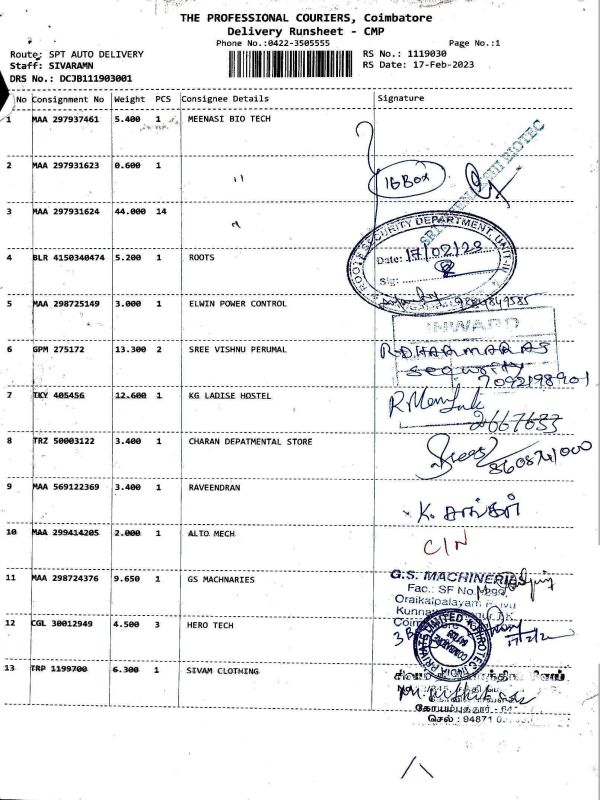 THE PROFESSIONAL COURIERS, Coimbatore
Delivery Runsheet - CMP
Phone No.:0422-3505555
Page No.:1
Route: SPT AUTO DELIVERY
RS No.: 1119030
Staff: SIVARAMN
RS Date: 17-Feb-2023
DRS No.: DCJB111903001
No Consignment No Weight PCS Consignee Details Signature
1 MAA 297937461 5.400 1 MEENASI BIO TECH
SRI BIOTEC
2 MAA 297931623 0.600 1 ,,
16 Box
3 MAA 297931624 44.000 14 "
ROOTS SECURITY DEPARTMENT, UNIT-III
Date: 17/02/23
Sig:
4 BLR 4150340474 5.200 1 ROOTS
5 MAA 298725149 3.000 1 ELWIN POWER CONTROL
INWARD
6 GPM 275172 13.300 2 SREE VISHNU PERUMAL
R.DHARMARAS
Security
7092198901
7 TKY 405456 12.600 1 KG LADISE HOSTEL
2667633
8 TRZ 50003122 3.400 1 CHARAN DEPATMENTAL STORE
9 MAA 569122369 3.400 1 RAVEENDRAN
10 MAA 299414205 2.000 1 ALTO MECH
C/N
11 MAA 298724376 9.650 1 GS MACHNARIES
G.S. MACHINERIES
Fac.: SF No.
Oraikalpalayam
12 CGL 30012949 4.500 3 HERO TECH
PRIVATE LIMITED
INDIA
13 TRP 1199700 6.300 1 SIVAM CLOTHING
கோயம்புத்தூர் - 641
செல் : 94871